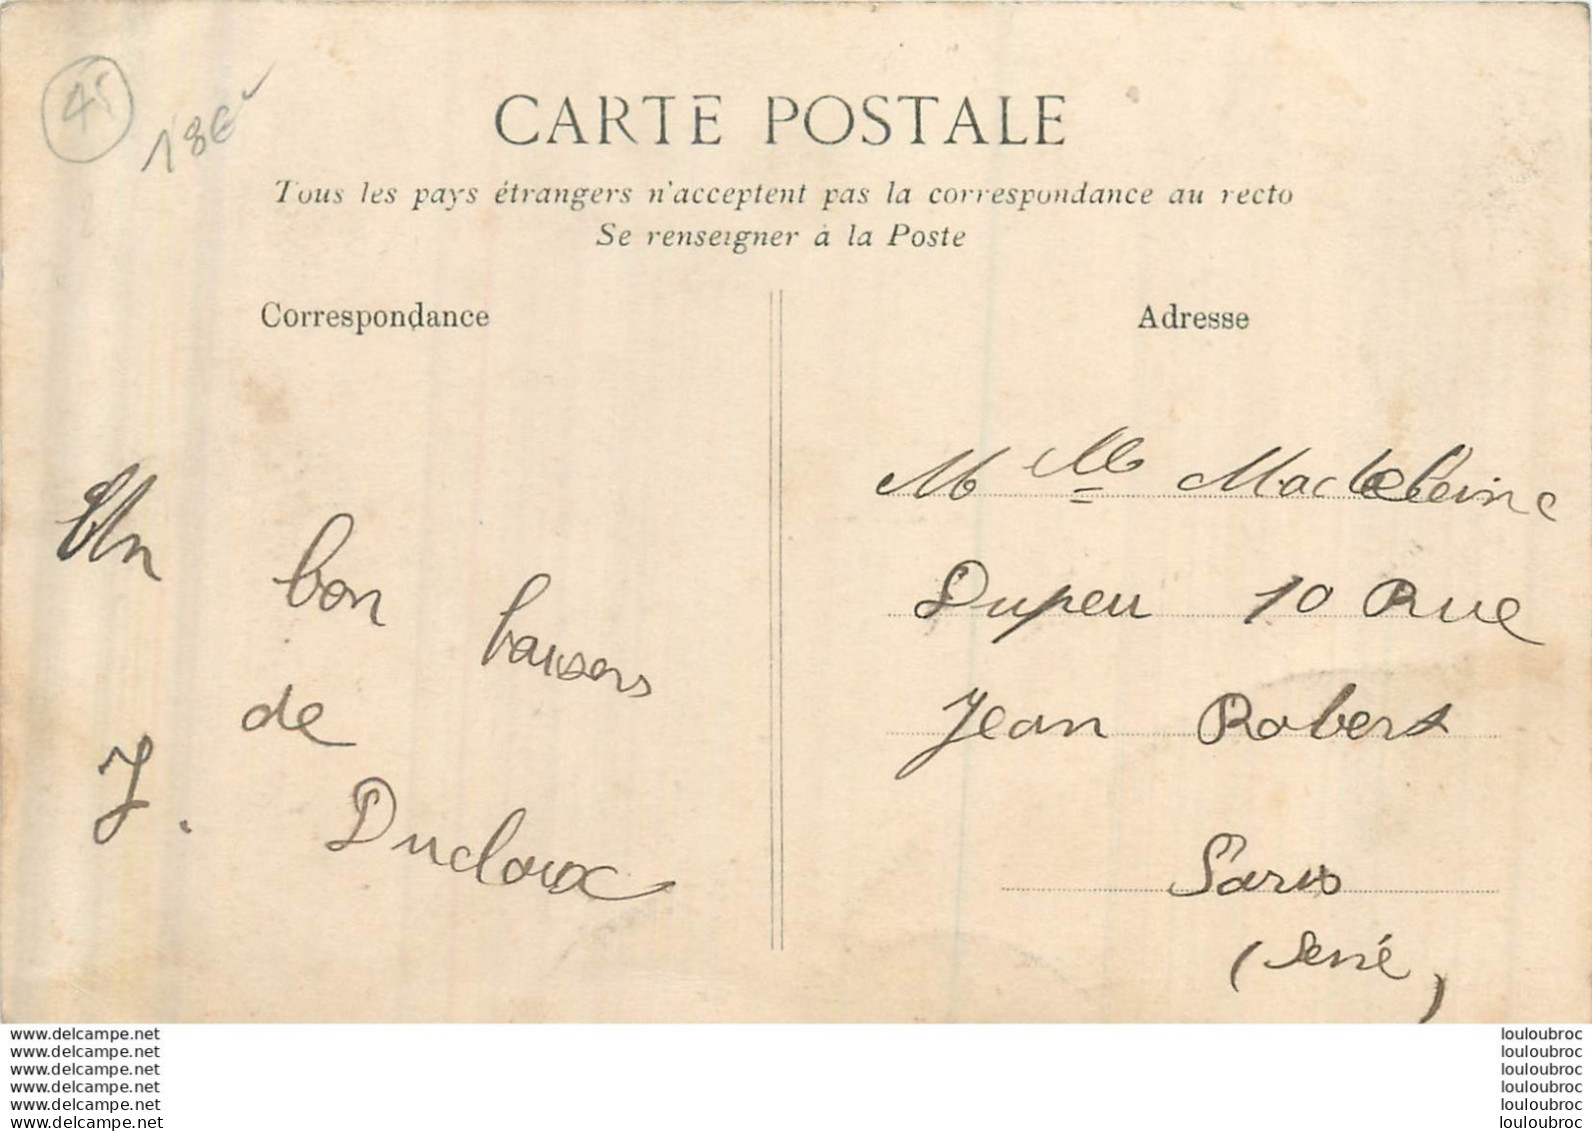 45
18€
CARTE POSTALE
Tous les pays étrangers n'acceptent pas la correspondance au recto
Se renseigner à la Poste
Correspondance
Un bon baisers
de
J. Ducloux
Adresse
Mlle Madeleine
Dupeu 10 Rue
Jean Robert
Paris
(Seine)
www.delcampe.net
www.delcampe.net
www.delcampe.net
www.delcampe.net
www.delcampe.net
www.delcampe.net
louloubroc
louloubroc
louloubroc
louloubroc
louloubroc
louloubroc